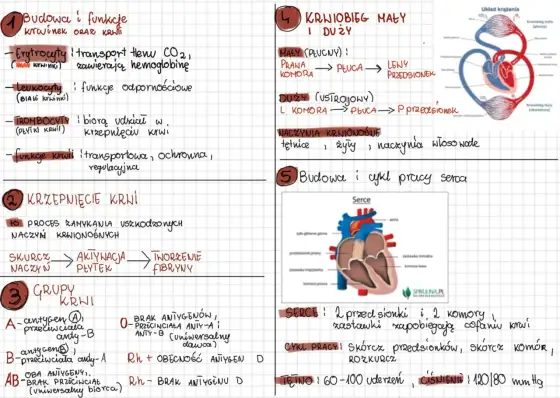 1 Budowa i funkcje
krwinek oraz krwi
- Erytrocyty : transport tlenu CO2,
(krwinki) zawierają hemoglobinę
- Leukocyty : funkcje odpornościowe
(BIAŁE krwinki)
- TROMBOCYTY : biorą udział w
(PŁYTKI KRWI) krzepnięciu krwi
- funkcje krwi : transportowa, ochronna,
regulacyjna
2 KRZEPNIĘCIE KRWI
TO PROCES ZAMYKANIA USZKODZONYCH
NACZYŃ KRWIONOŚNYCH
SKURCZ NACZYŃ → AKTYWACJA PŁYTEK → TWORZENIE FIBRYNY
3 GRUPY
KRWI
A - antygen A,
- przeciwciała
anty-B
B - antygen B,
- przeciwciała anty-A
AB - OBA ANTYGENY,
- BRAK PRZECIWCIAŁ
(uniwersalny biorca)
0 - BRAK ANTYGENÓW,
PRZECIWCIAŁA ANTY-A i
ANTY-B (uniwersalny
dawca)
Rh + OBECNOŚĆ ANTYGEN D
Rh - BRAK ANTYGENU D
4 KRWIOBIEG MAŁY
I DUŻY
MAŁY (PŁUCNY) :
PRAWA KOMORA → PŁUCA → LEWY PRZEDSIONEK
DUŻY (USTROJOWY)
L KOMORA → PŁUCA → P przedsionek
NACZYNIA KRWIONOŚNE
tętnice, żyły, naczynia włosowate
Układ krążenia
5 Budowa i cykl pracy serca
Serce
SERCE : 2 przedsionki i 2 komory,
zastawki zapobiegają cofaniu krwi
CYKL PRACY : skórcz przedsionków, skórcz komór,
ROZKURCZ
TĘTNO : 60-100 uderzeń, CIŚNIENIE : 120/80 mmHg